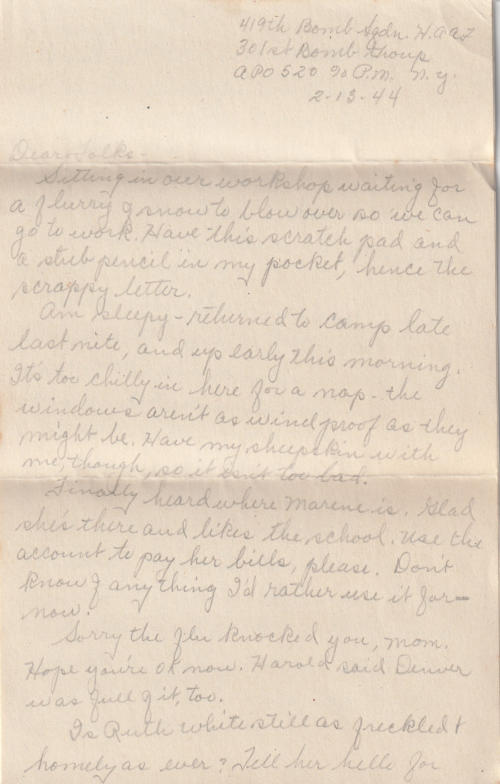 419th Bomb Sqdn. H.AAF
301st Bomb Group
APO 520 % P.M. N.Y.
2-13-44
Dear Folks-
Sitting in our workshop waiting for
a flurry of snow to blow over so we can
go to work. Have this scratch pad and
a stub pencil in my pocket, hence the
scrappy letter.
Am sleepy - returned to camp late
last nite, and up early this morning.
It's too chilly in here for a nap - the
windows aren't as wind proof as they
might be. Have my sheepskin with
me, though, so it isn't too bad.
Finally heard where Marene is. Glad
she's there and likes the school. Use the
account to pay her bills, please. Don't
know of anything I'd rather use it for—
now.
Sorry the flu knocked you, Mom.
Hope you're ok now. Harold said Denver
was full of it, too.
Is Ruth White still as freckled &
homely as ever? Tell her hello for